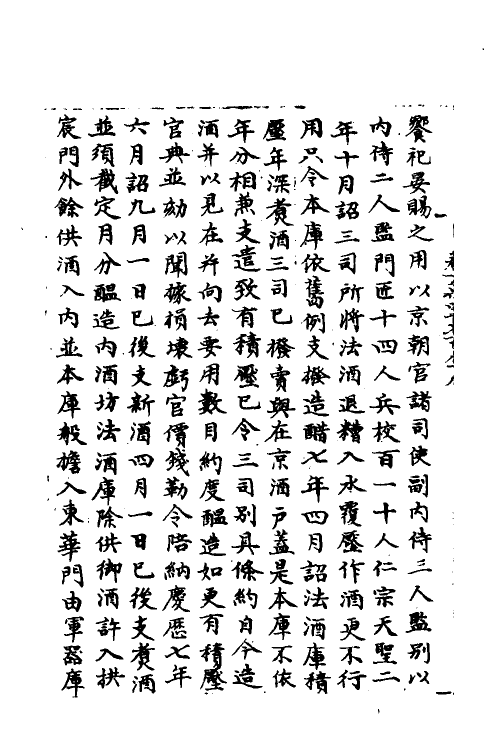 饗祀晏賜之用以京朝官諸司使副内侍三人監别以
内侍二人監門匠十四人兵校百一十人仁宗天聖二
年十月詔三司所將法酒退糟入水覆壓作酒更不行
用只令本庫依舊例支撥造醋七年四月詔法酒庫積
壓年深煑酒三司已撥賣與在京酒户蓋是本庫不依
年分相兼支遣致有積壓已令三司别具條約自今造
酒并以見在并向去要用數目約度醖造如更有積壓
官典並劾以聞據損壞虧官價錢勒令陪納慶歴七年
六月詔九月一日已後支新酒四月一日已後支煑酒
並須截定月分醖造内酒坊法酒庫除供御酒許入拱
宸門外餘供酒入内並本庫般擔入東華門由軍器庫